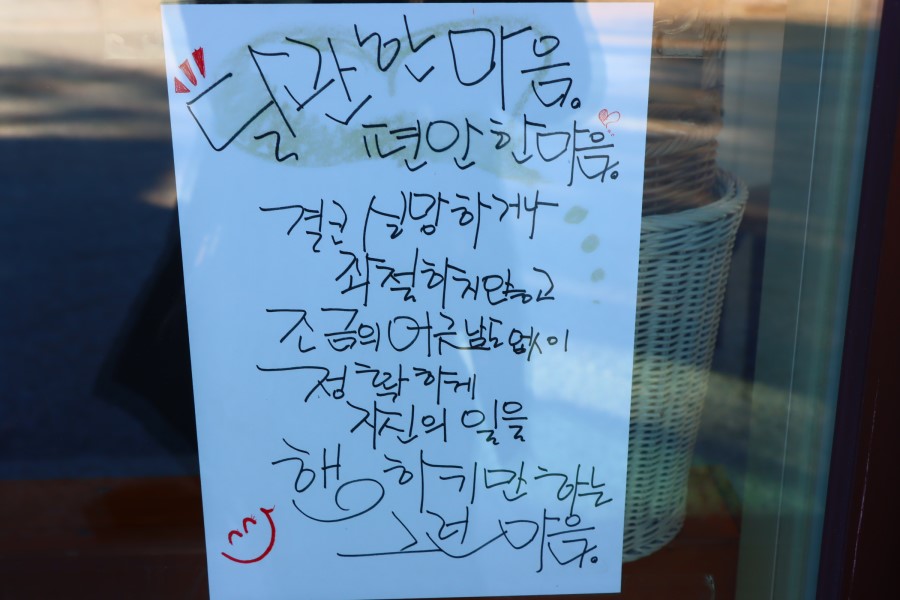 달관한 마음.
편안한 마음.
결코 실망하거나
좌절하지 않고
조금의 어긋남도 없이
정확하게
자신의 일을
행하기만 하는
그런 마음.